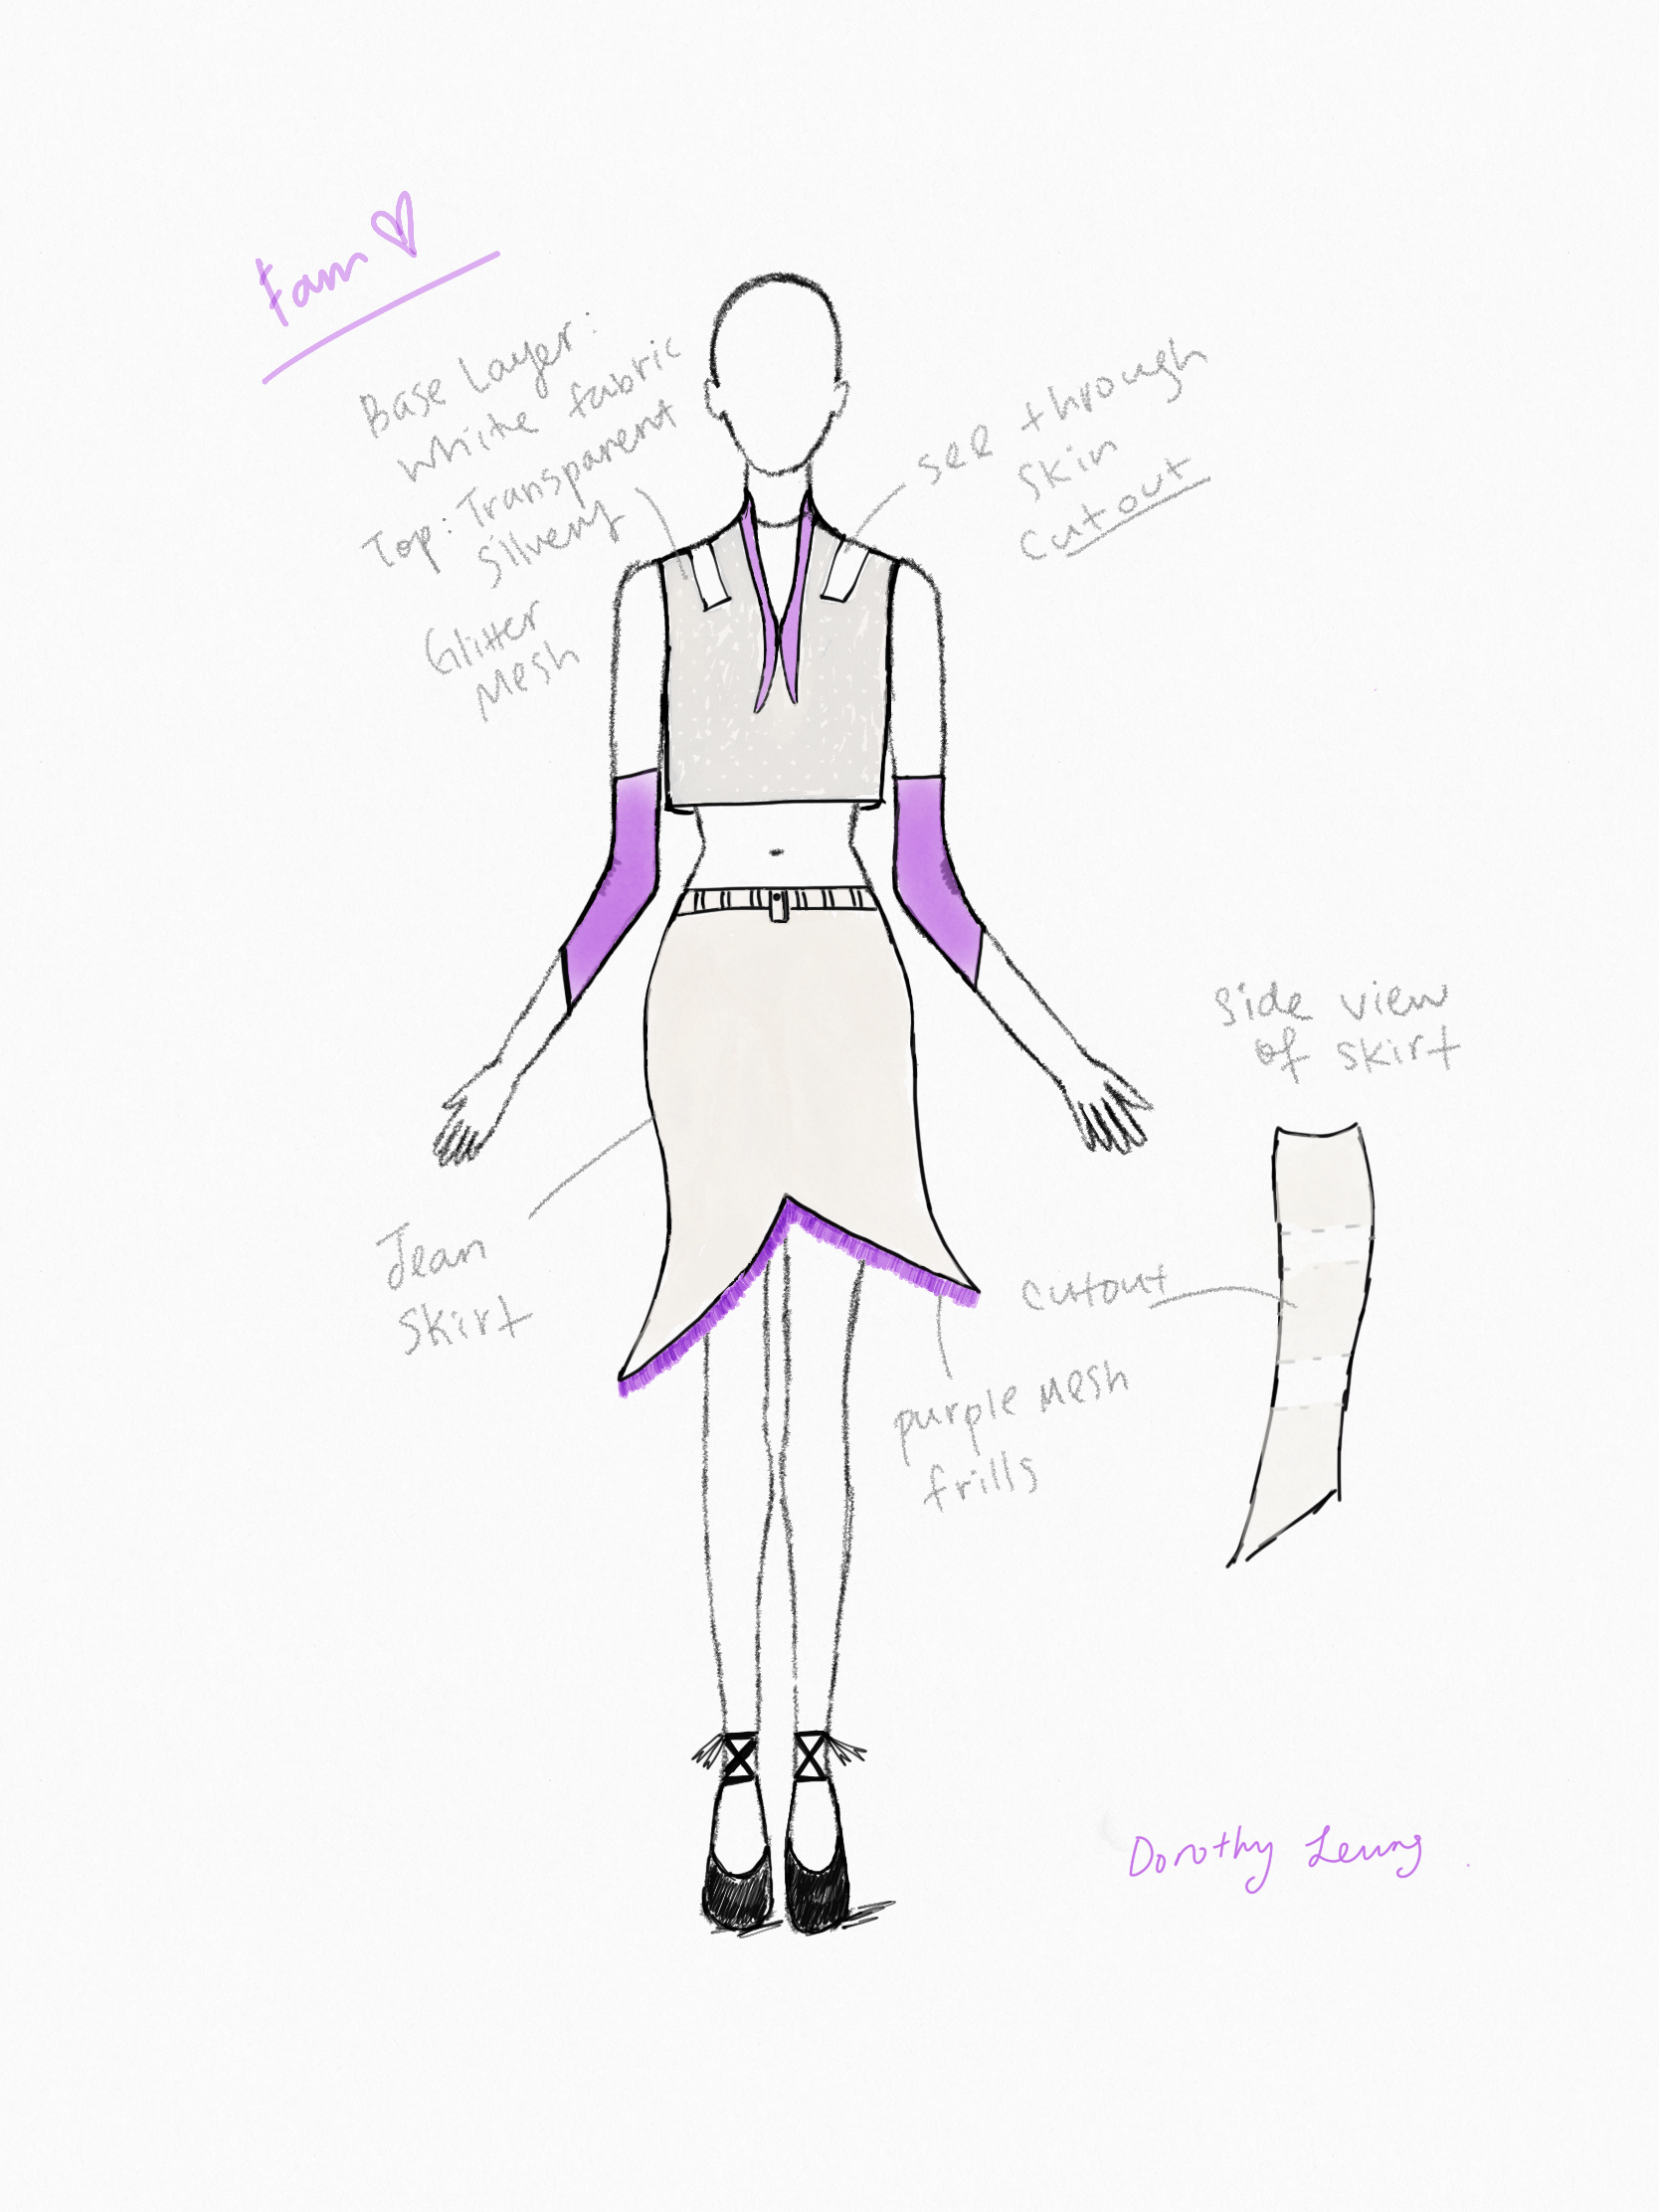 Fam
Base Layer:
white fabric
Top: Transparent
Silvery
Glitter
Mesh
see through
skin
cutout
side view
of skirt
Jean
skirt
cutout
purple mesh
frills
Dorothy Leung